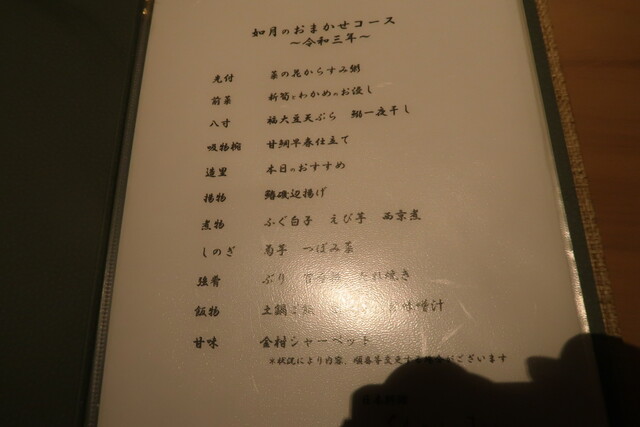 如月のおまかせコース
～令和三年～
先付 菜の花からすみ粥
前菜 新筍とわかめのお浸し
八寸 福大豆天ぷら 鰯一夜干し
吸物椀 甘鯛早春仕立て
造里 本日のおすすめ
揚物 磯辺揚げ
煮物 ふぐ白子 えび芋 西京煮
しのぎ 菊芋 つぼみ菜
強肴 ぶり たれ焼き
飯物 土鍋ご飯 お味噌汁
甘味 金柑シャーベット
＊状況により内容、順番等変更する場合がございます